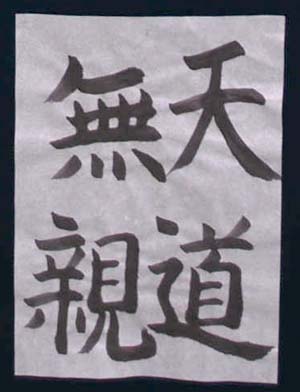 天道
無親